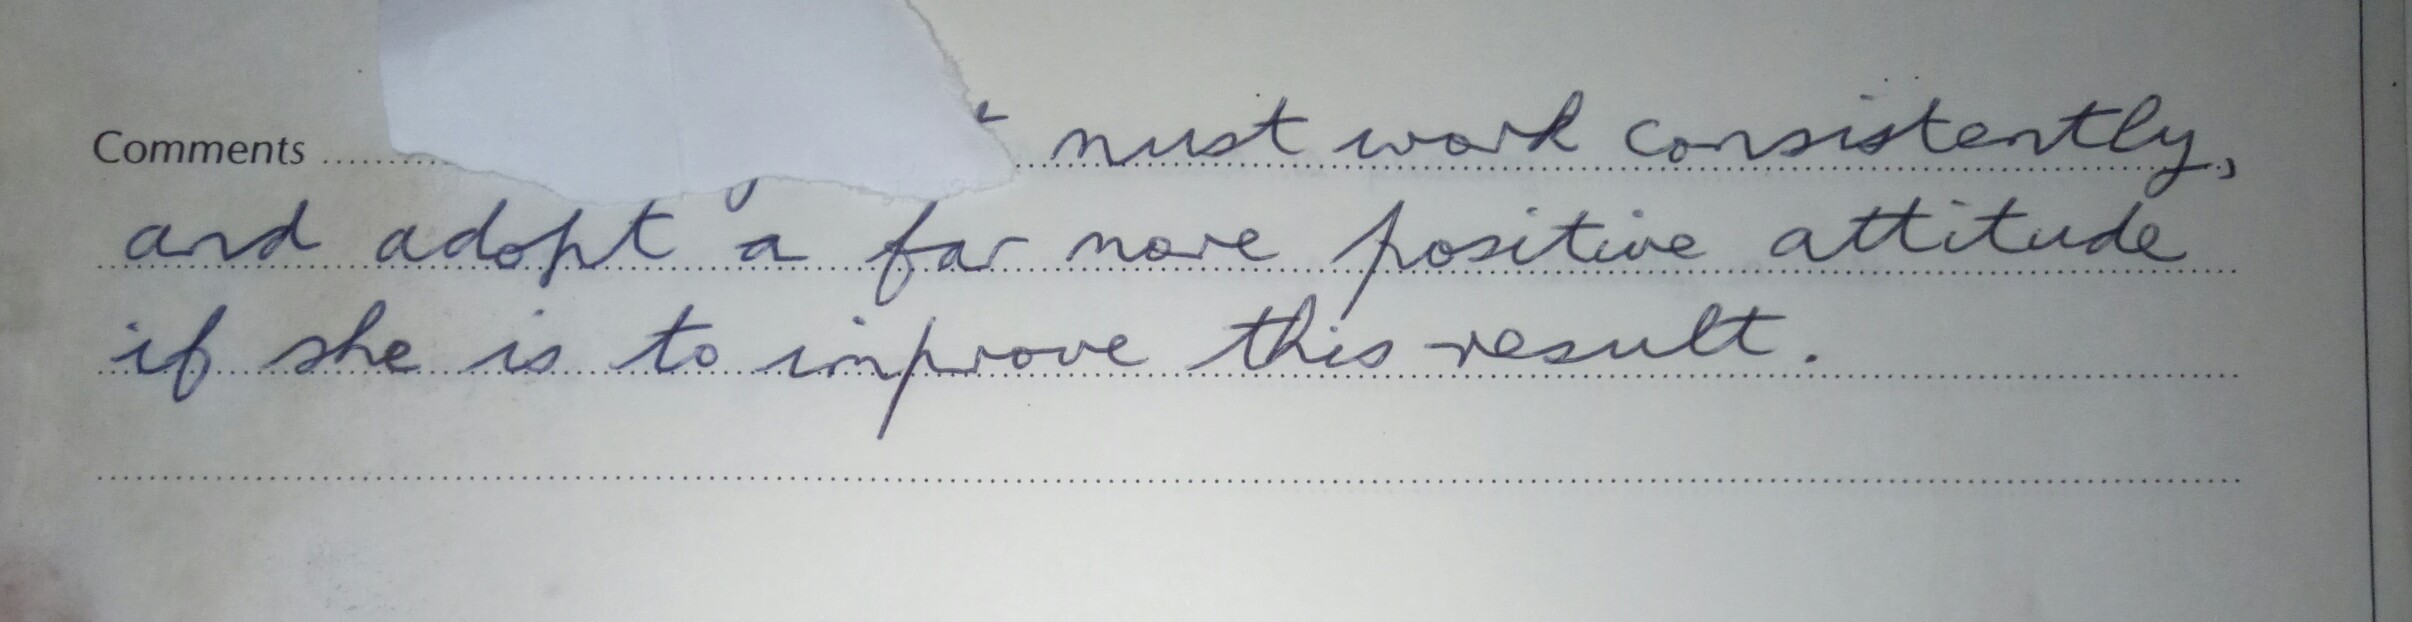 Comments must work consistently,
and adopt a far more positive attitude
if she is to improve this result.